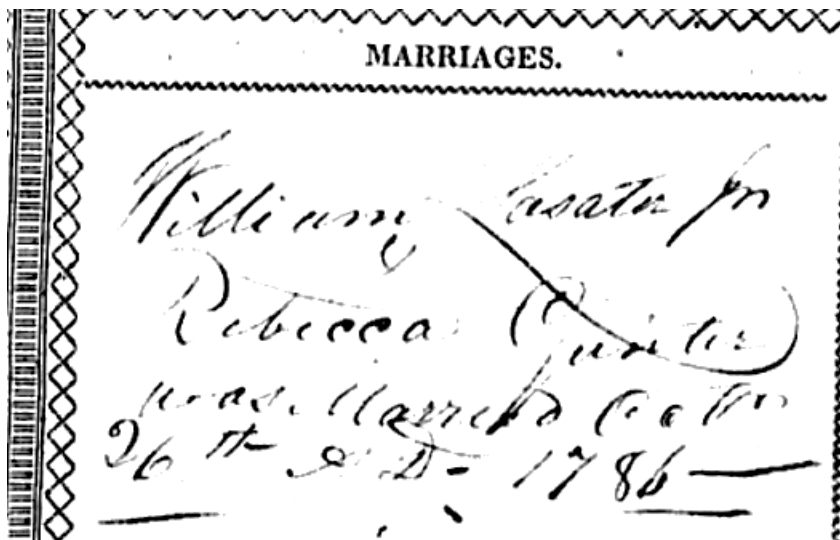 MARRIAGES.
William Lasater Jn
Rebecca Gunter
was Married Oct
26th A D - 1786